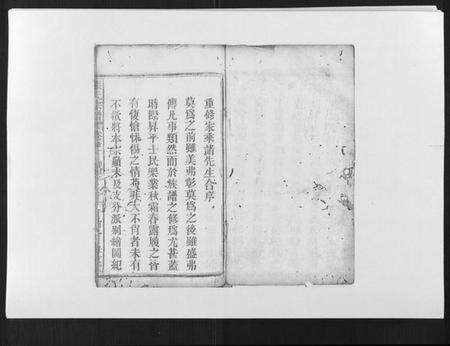 重修宋乘諸先生合序
莫爲之前雖美弗彰莫爲之後雖盛弗
傳凡事類然而於族譜之修爲尤甚蓋
時際昇平士民樂業秋霜春露履之皆
有悽愴怵惕之情苟非大不肖者未有
不欲將本宗顛末及支分派別繪圖紀